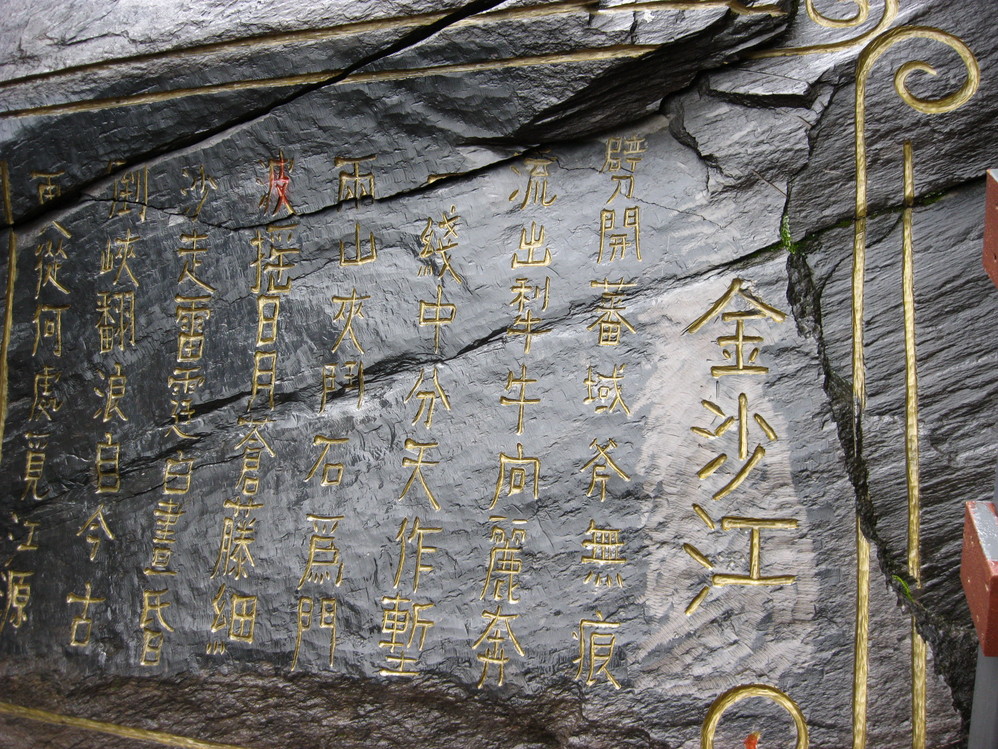 金沙江
劈開蕃域斧無痕
流出犁牛向麗奔
一綫中分天作塹
兩山夾鬥石爲門
搖日月蒼藤細
沙走雷霆白晝昏
倒峽翻浪自今古
更從何處覓江源